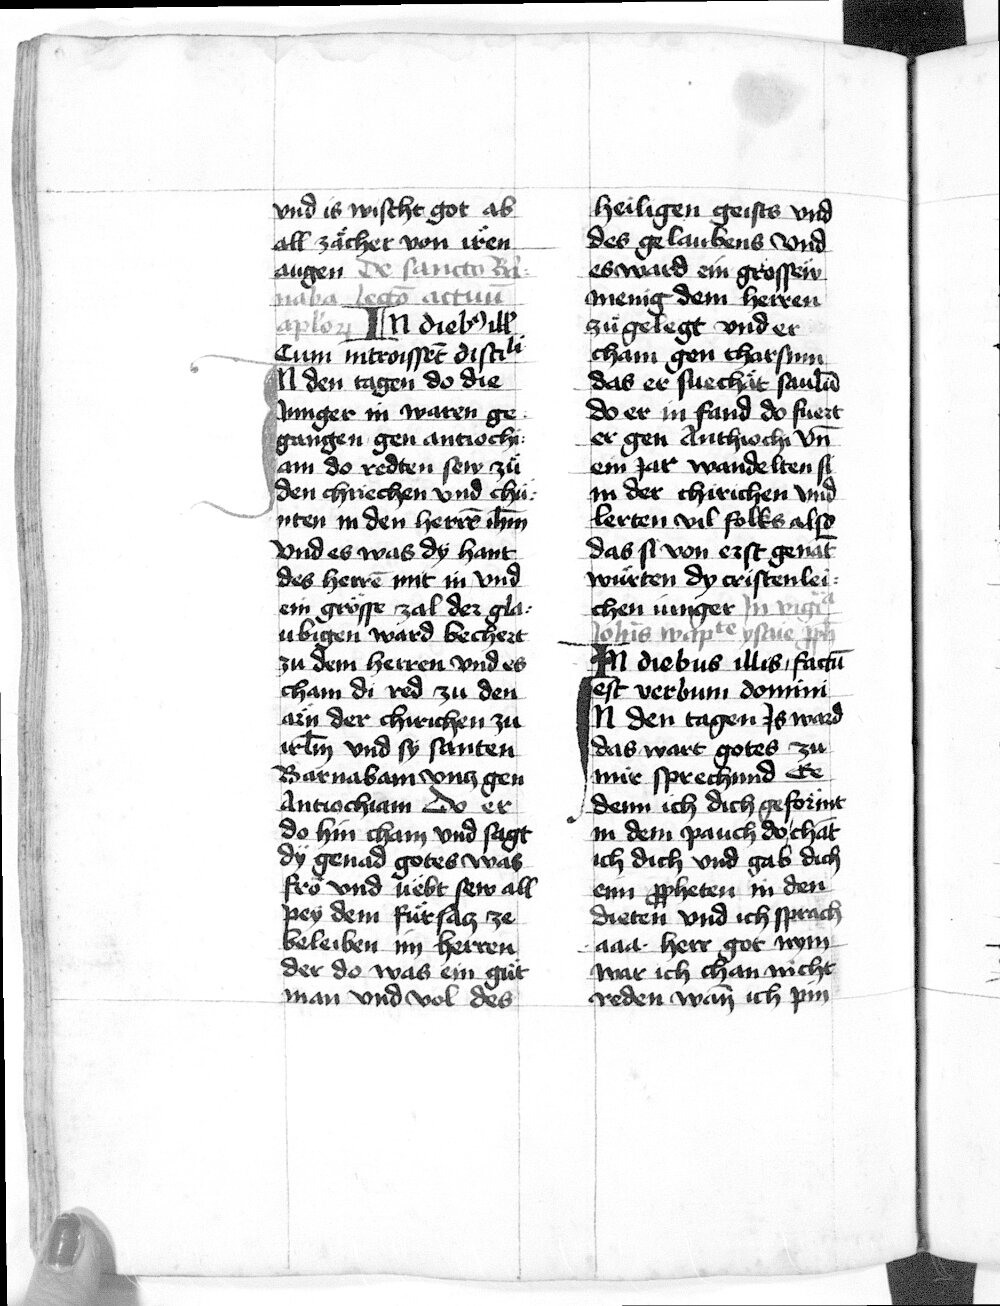 vnd is wischt got ab
all zächer von iren
augen De sancto Bar-
naba lectō actuū
aplor IN dieb9 ill
Cum introissēt discili
IN den tagen do die
Junger in waren ge-
gangen gen antiochi-
am do redten sew zü
den chriechen vnd chü-
nten in den herrē ihm
vnd es was dy hant
des herrē mit in vnd
ein grösse zal der gla-
ubigen ward bechert
zu dem herren vnd es
cham di red zu den
arn der chirichen zu
irlm vnd sy santen
Barnabam vncz gen
Antiochiam Do er
do hin cham vnd sagt
dÿ genad gotes was
frö vnd üebt sew all
pey dem fürsacz ze
beleiben im herren
der do was ein güt
man vnd vol des
heiligen geists vnd
des gelaubens vnd
es ward ein grossew
menig dem herren
zügelegt vnd er
cham gen tharsum
das er suechät saulū
do er in fand do fuert
er gen Anthiochi vn̄
ein Jar wandelten si
in der chirichen vnd
lerten vil folks also
das si von erst genāt
würten dy cristenlei-
chen iunger In vigia
Johīs wapte ysaie pph
IN diebus illis factū
est verbum domini
IN den tagen Js ward
das wart gotes zu
mir sprechund Ee
denn ich dich geformt
in dem pauch do chāt
ich dich vnd gab dich
ein ppheten in den
dieten vnd ich sprach
aaa herr got nym
war ich chan nicht
reden wan̄ ich pin